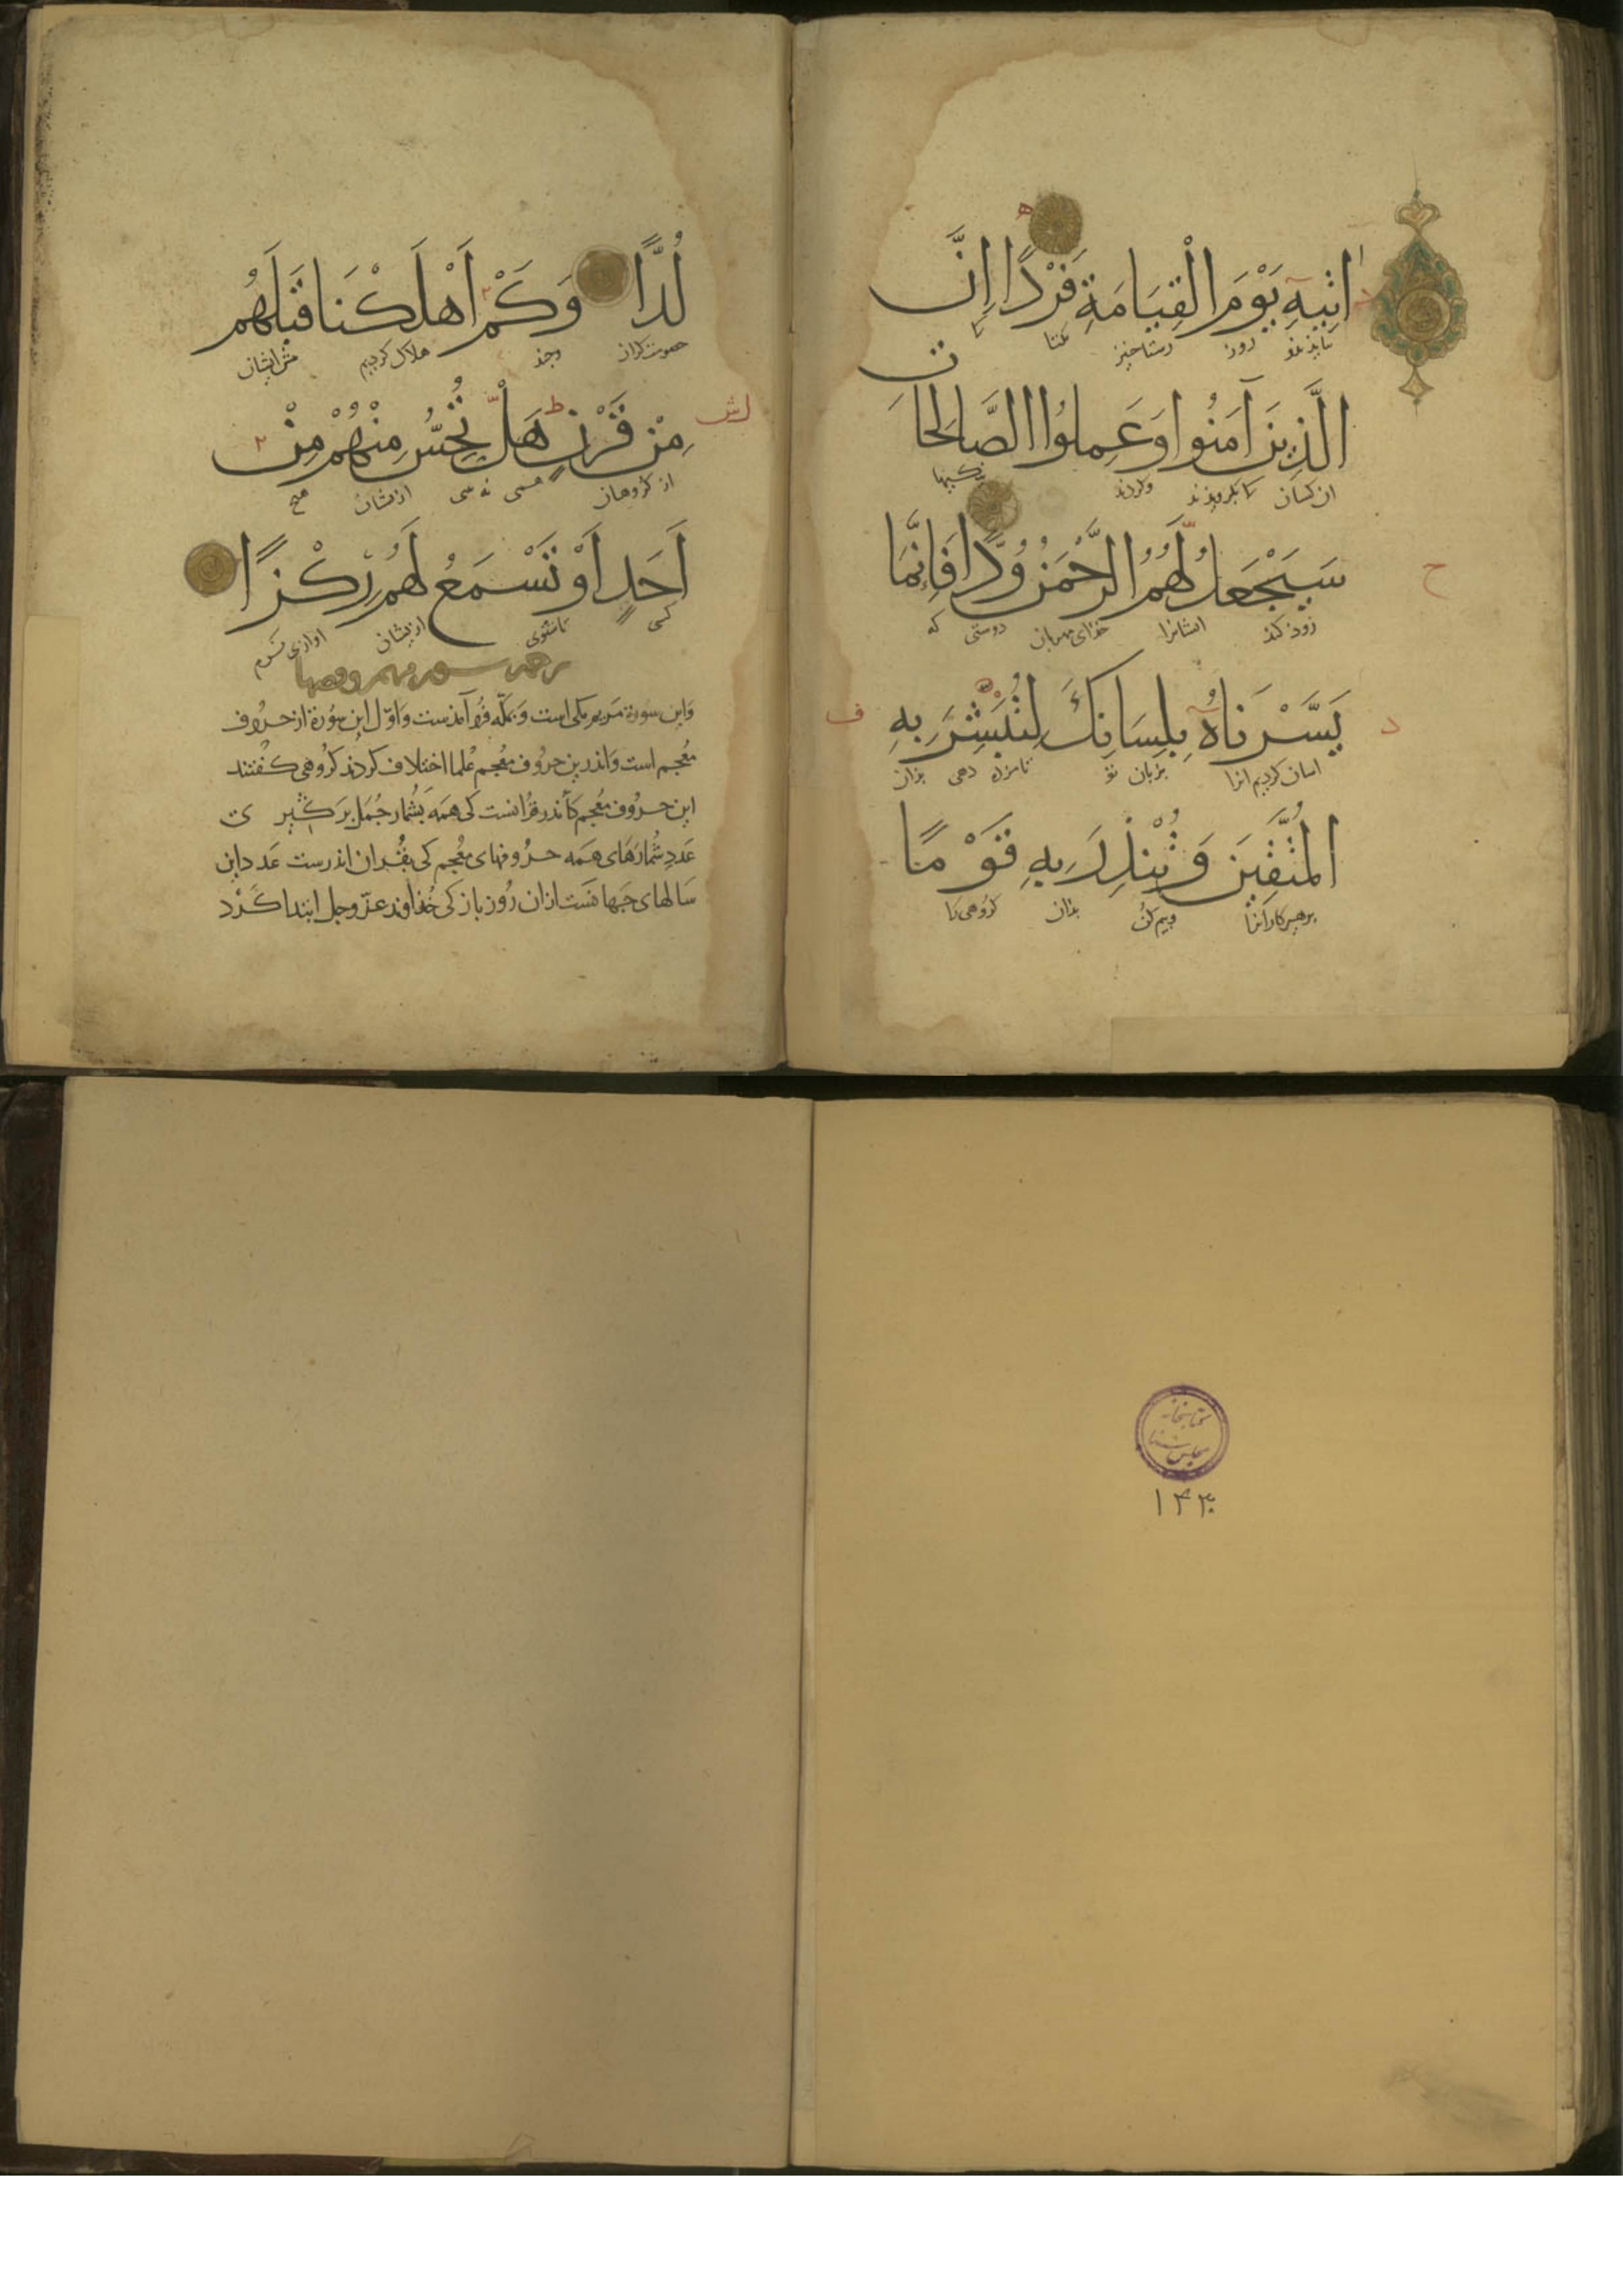 اتِيهِ يَوْمَ الْقِيَامَةِ فَرْدًا اِنَّ
روز رستاخیز
الَّذِينَ آمَنُوا وَعَمِلُوا الصَّالِحَاتِ
ان کسان کا بکرویذند وکردند
سَيَجْعَلُ لَهُمُ الرَّحْمَنُ وُدًّا فَإِنَّمَا
زوذ کند ایشانرا خذای مهربان دوستی که
يَسَّرْنَاهُ بِلِسَانِكَ لِتُبَشِّرَ بِهِ
اسان کردیم انرا بزبان تو تا مزده دهی بذان
الْمُتَّقِينَ وَتُنْذِرَ بِهِ قَوْمًا
وبیم کن بذان کروهی را
لُدًّا وَكَمْ اَهْلَكْنَا قَبْلَهُمْ
وجند هلاک کردیم
مِنْ قَرْنٍ هَلْ تُحِسُّ مِنْهُمْ مِنْ
از کروهان ازیشان هیچ
اَحَدٍ اَوْ تَسْمَعُ لَهُمْ رِكْزًا
کسی تا شنوی ازیشان اوازی نرم
واین سورة مریم مکی است وبمکّه فرو آمذست واوّل این سورة از حروف
معجم است واندرین حروف معجم علما اختلاف کردند کروهی کفتند
این حروف معجم کأندر قرانست کی همه بشمار جمل برکیری
عدد شمارهای همه حروفهای معجم کی بقران اندرست عدد این
سالهای جهانست ازان روز باز کی خذاوند عزّ وجل ابتدا کرد
کتابخانه
مجلس سنا
۱۴۳۰